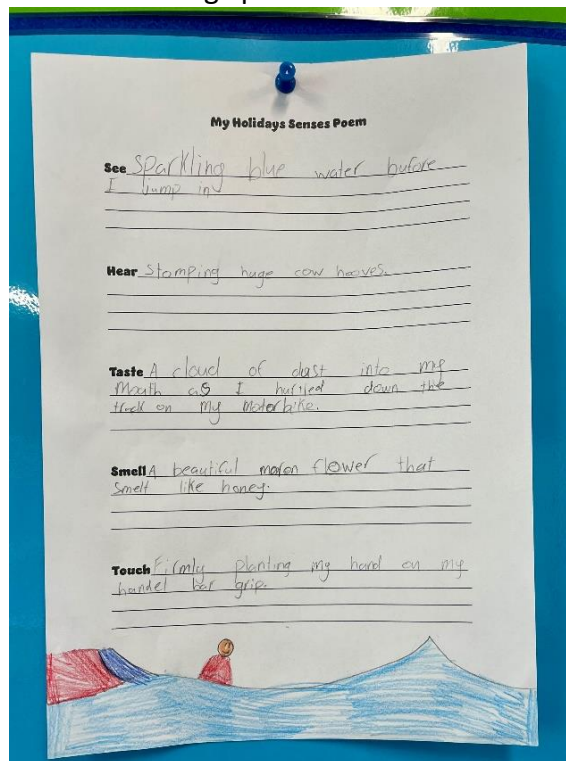 My Holidays Senses Poem
See Sparkling blue water bufore
I jump in
Hear Stomping huge cow hooves.
Taste A cloud of dust into my
Mouth as I hurtled down the
track on my Motorbike.
Smell A beautiful maron flower that
Smelt like honey.
Touch Firmly planting my hand on my
handel bar grip.